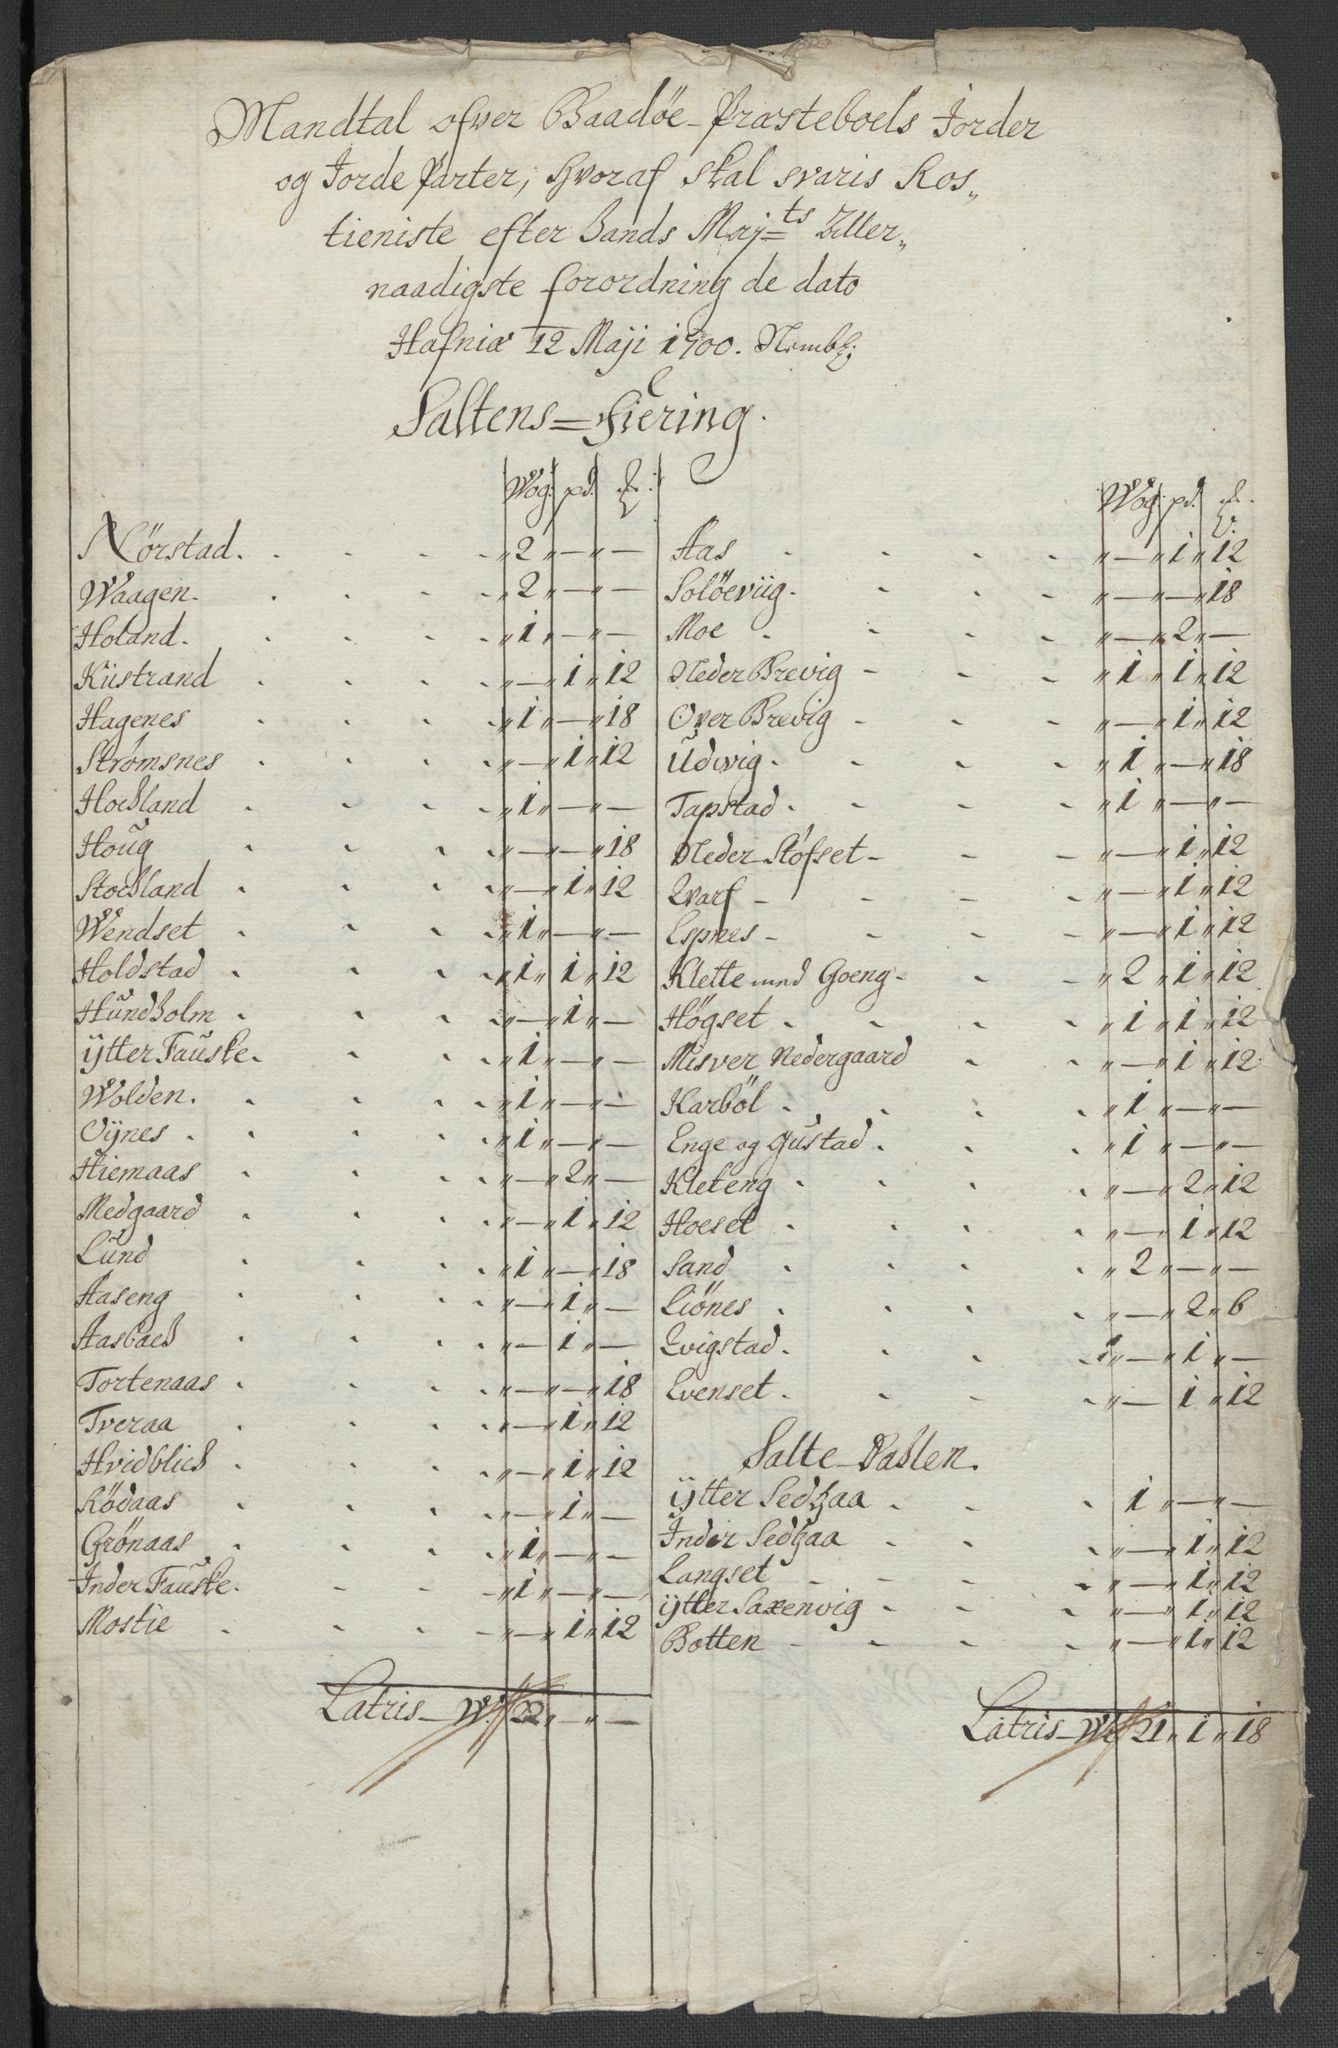 Mandtal ofver Baadöe-Præsteboels Jorder
og Jorde Parter, hvoraf skal svaris Ros„
tieniste efter hands Maj=ts Aller„
naadigste forordning de dato
Hafniæ 12 Maji 1700. Nembl:
Saltens=Fiering.
Wog: pd. ℔:
Nörstad. „2„—„—
Waagen. „2„—„—
Holand. „1„—„—
Kiistrand „—„1„12
Hagenes „1„—„18
Strömsnes „—„1„12
Hochland „1„—„—
Houg „—„—„18
Stochland „—„1„12
Wendset „1„—„—
Holdstad „1„1„12
Hundholm „—„1„—
ijtter Fauske. „1„—„—
Wolden. „1„—„—
Öijnes „1„—„—
Hiemaas „—„2„—
Medgaard „—„1„12
Lund „1„—„18
Aaseng „—„1„—
Aasbach „—„1„—
Tortenaas „—„—„18
Tveraa „—„1„12
Hvidblich „—„1„12
Rödaas „—„1„—
Grönaas „1„—„—
Inder Fauske. „1„—„—
Mostie „—„1„12
Latris_W: 22„—„—
Wog: pd. ℔.
Aas „—„1„12
Solöeviig. „—„—„18
Moe „—„2„—
Neder Brevig „1„1„12
Over Brevig „—„1„12
Udvig. „1„—„18
Tapstad. „1„—„—
Neder_Stöfset_ „—„1„12
Qvarf „—„1„12
Espnes „—„1„12
Klette med Goeng „2„1„12
Högset „1„1„12
Misver Nedergaard „—„1„12
Karböl „1„—„—
Enge og Gustad. „1„—„—
Kleteng „—„2„12
Hoeset „—„1„12
Sand „2„—„—
Liönes „—„2„6
Qvigstad. „—„1„—
Evenset. „—„1„12
Salte_Dahlen.
ijtter Sedhaa „1„—„—
Inder Sedhaa „—„1„12
Langset „—„1„12
ijtter Saxenvig „—„1„12
Botten „—„1„12
Latris_W: 21„1„18